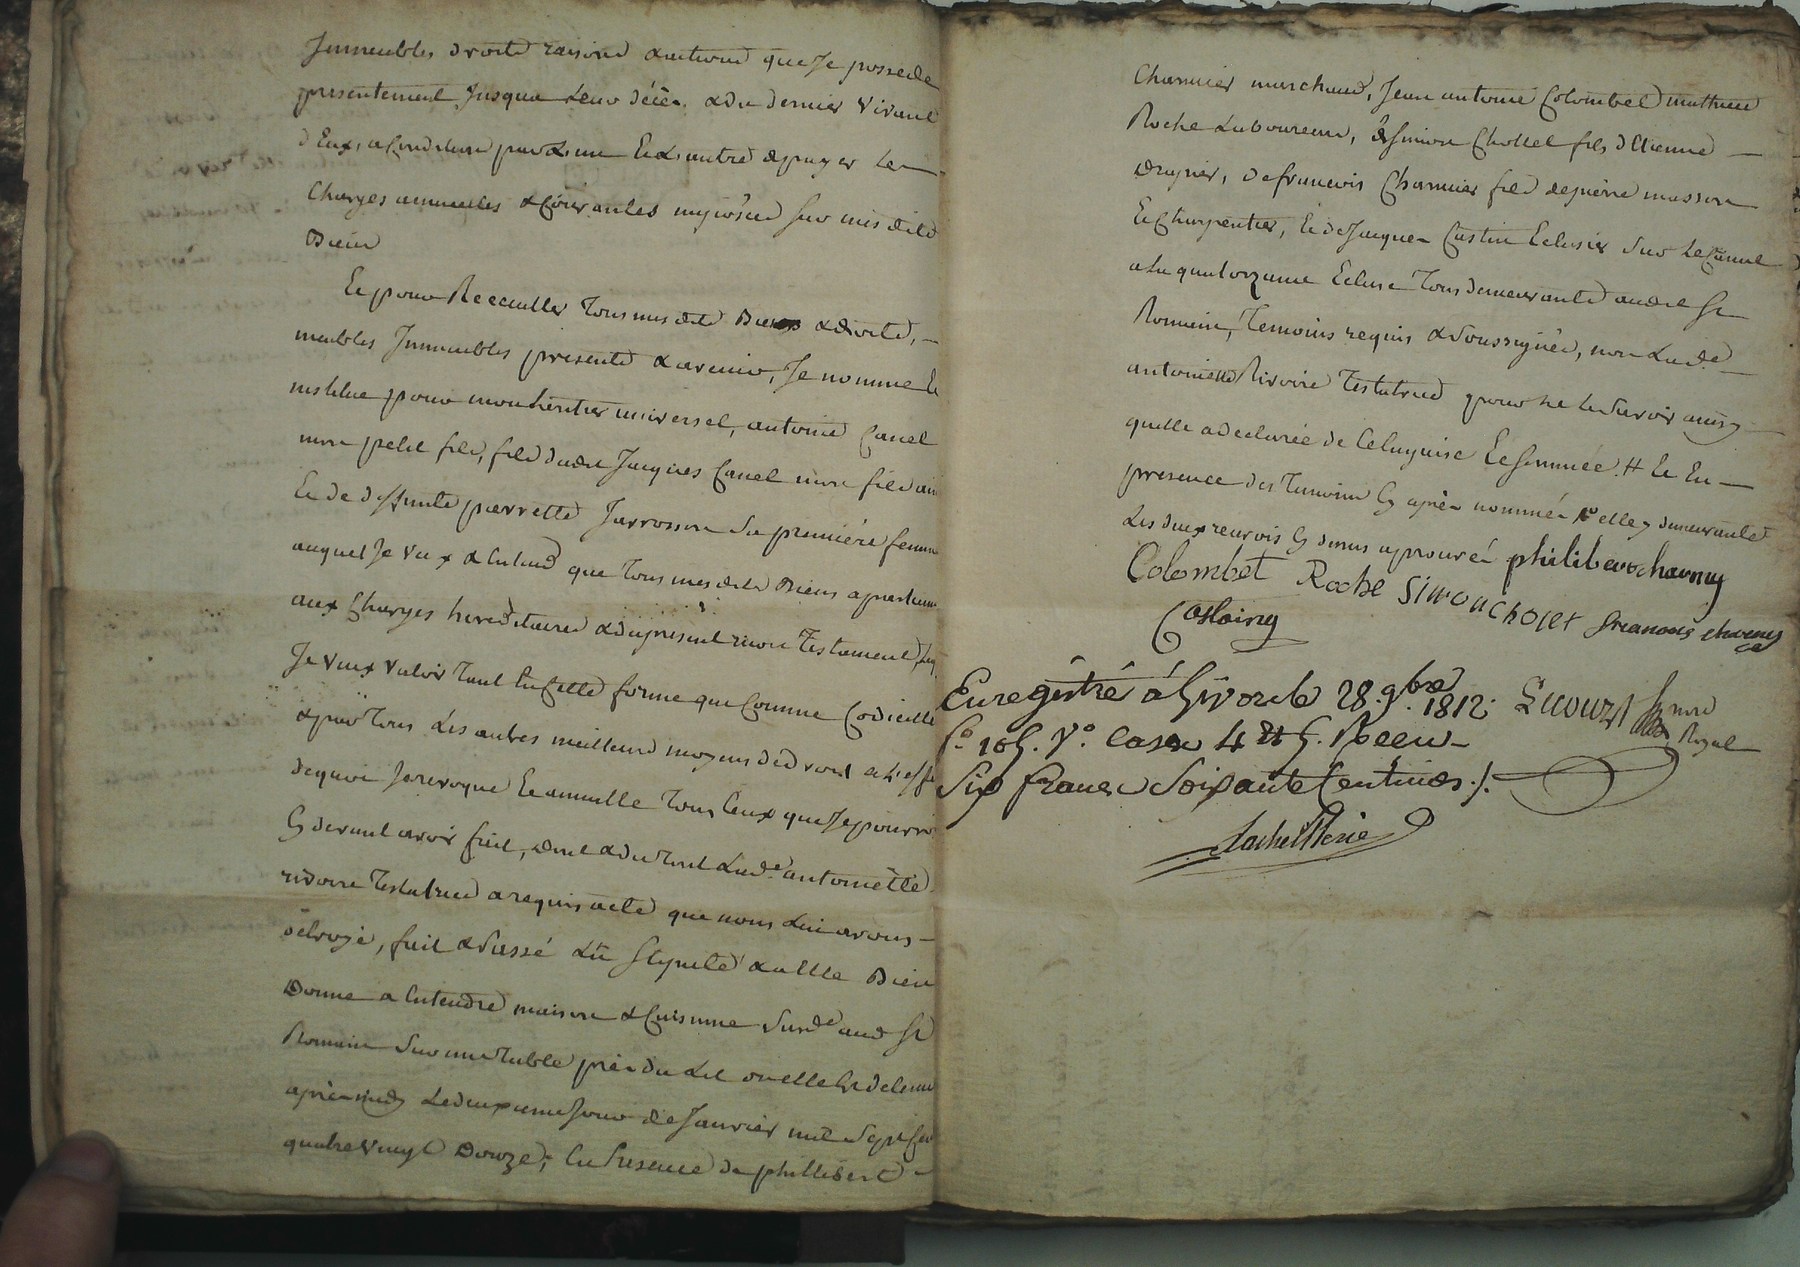 Immeubles droits raisons & actions que Je possede
presentement Jusqua leur décès & du dernier vivant
d'Eux, a Condition par l'un & l'autre de payer les
Charges annuelles & Courantes imposées sur mes dits
Biens
Et pour Recueillir Tous mes dits Biens & droits,
meubles Immeubles presents & avenir, Je nomme &
institue pour mon heritier universel, antoine Canel
mon petit fils, fils dudit Jacques Canel mon fils
Et de deffunte pierrette Jarrosson sa premiére femme
auquel Je veux & Entend que Tous mes dits Biens
aux Charges hereditaires & du present mon Testament,
Je veux valoir Tant En Cette forme que Comme Codicille
& par Tous Les autres meilleurs moyens de droit
dequoi Je revoque Et annulle Tous Ceux que Je pourrois
Cy devant avoir fait, dont & du Tout Lad.e antoinette
rivoire Testatrice a requis acte que nous Lui avons
octroyé, fait & passé
Donne a Entendre maison & Cuisinne aud St
Romain Sur une Table près du Lit ou elle Est detenue
après midy Le deuxieme Jour de Janvier mil Sept Cent
quatre vingt Douze; En Presence de phillibert
Charnier marchand, Jean antoine Colombet mathieu
Roche Laboureur, de Simon Chollet fils d'Etienne
de francois Charnier fils de pierre masson
Et Charpentier, Et de Jacques Castin Eclusier Sur Le Canal
a La quatorzieme Ecluse Tous demeurants audit St
Romain, Temoins requis & Soussignés, non Lad.e
antoinette Rivoire Testatrice pour ne Le Savoir ainsy
quelle a declarée de Ce Enquise Et Sommée. # Et En
presence des Temoins Cy après nommés elle y demeurante
Les deux renvois Cy dessus aprouvés philiber charny
Colombet Roche Simon Cholet françois
Castaing
Enregistré à Givors le 28. 9bre. 1812.
f.o 105. V.o Case 4 et 5. Reçu
Six francs Soixante Centimes ./.
Royal